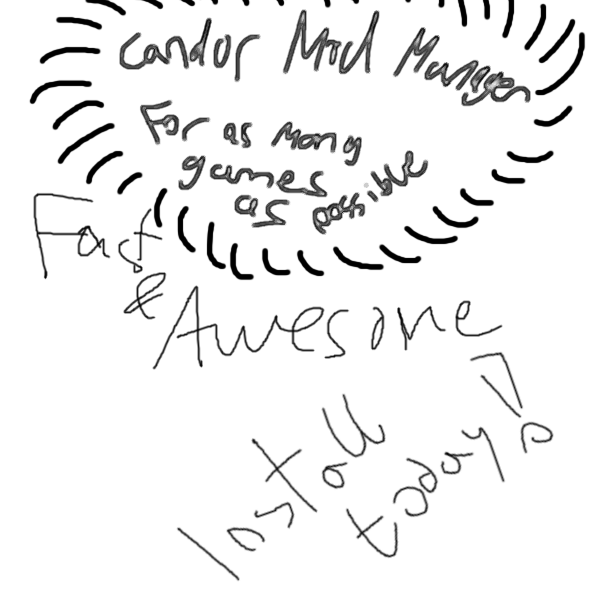 Candor Mod Manager
For as many
games
as possible
Fast
&
Awesome
Install
today!